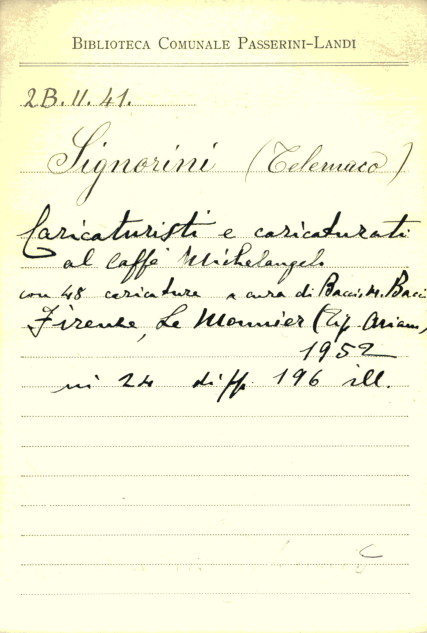 BIBLIOTECA COMUNALE PASSERINI-LANDI
2B.II.41.
Signorini (Telemaco)
Caricaturisti e caricaturati
al Caffè Michelangelo
con 48 caricature a cura di Bacci, M. Bacci
Firenze, Le Monnier (Tip. Ariani)
1952
in 24 di pp. 196 ill.